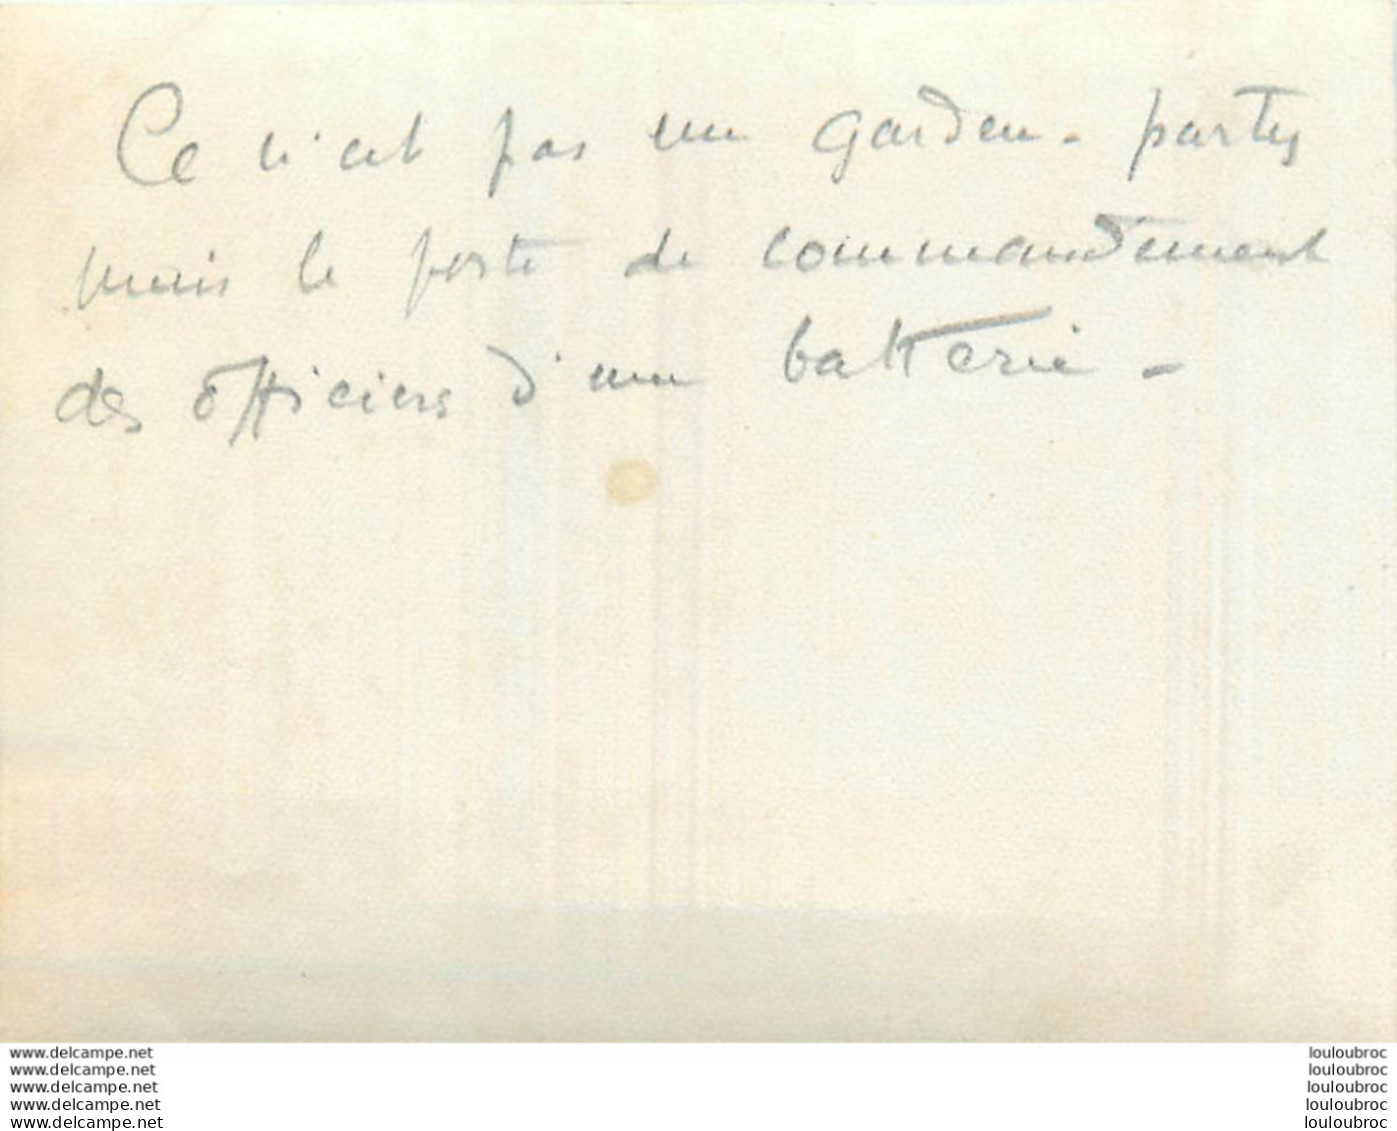 Ce n'est pas un garden-party
mais le poste de commandement
des officiers d'une batterie -
www.delcampe.net
www.delcampe.net
www.delcampe.net
www.delcampe.net
www.delcampe.net
louloubroc
louloubroc
louloubroc
louloubroc
louloubroc